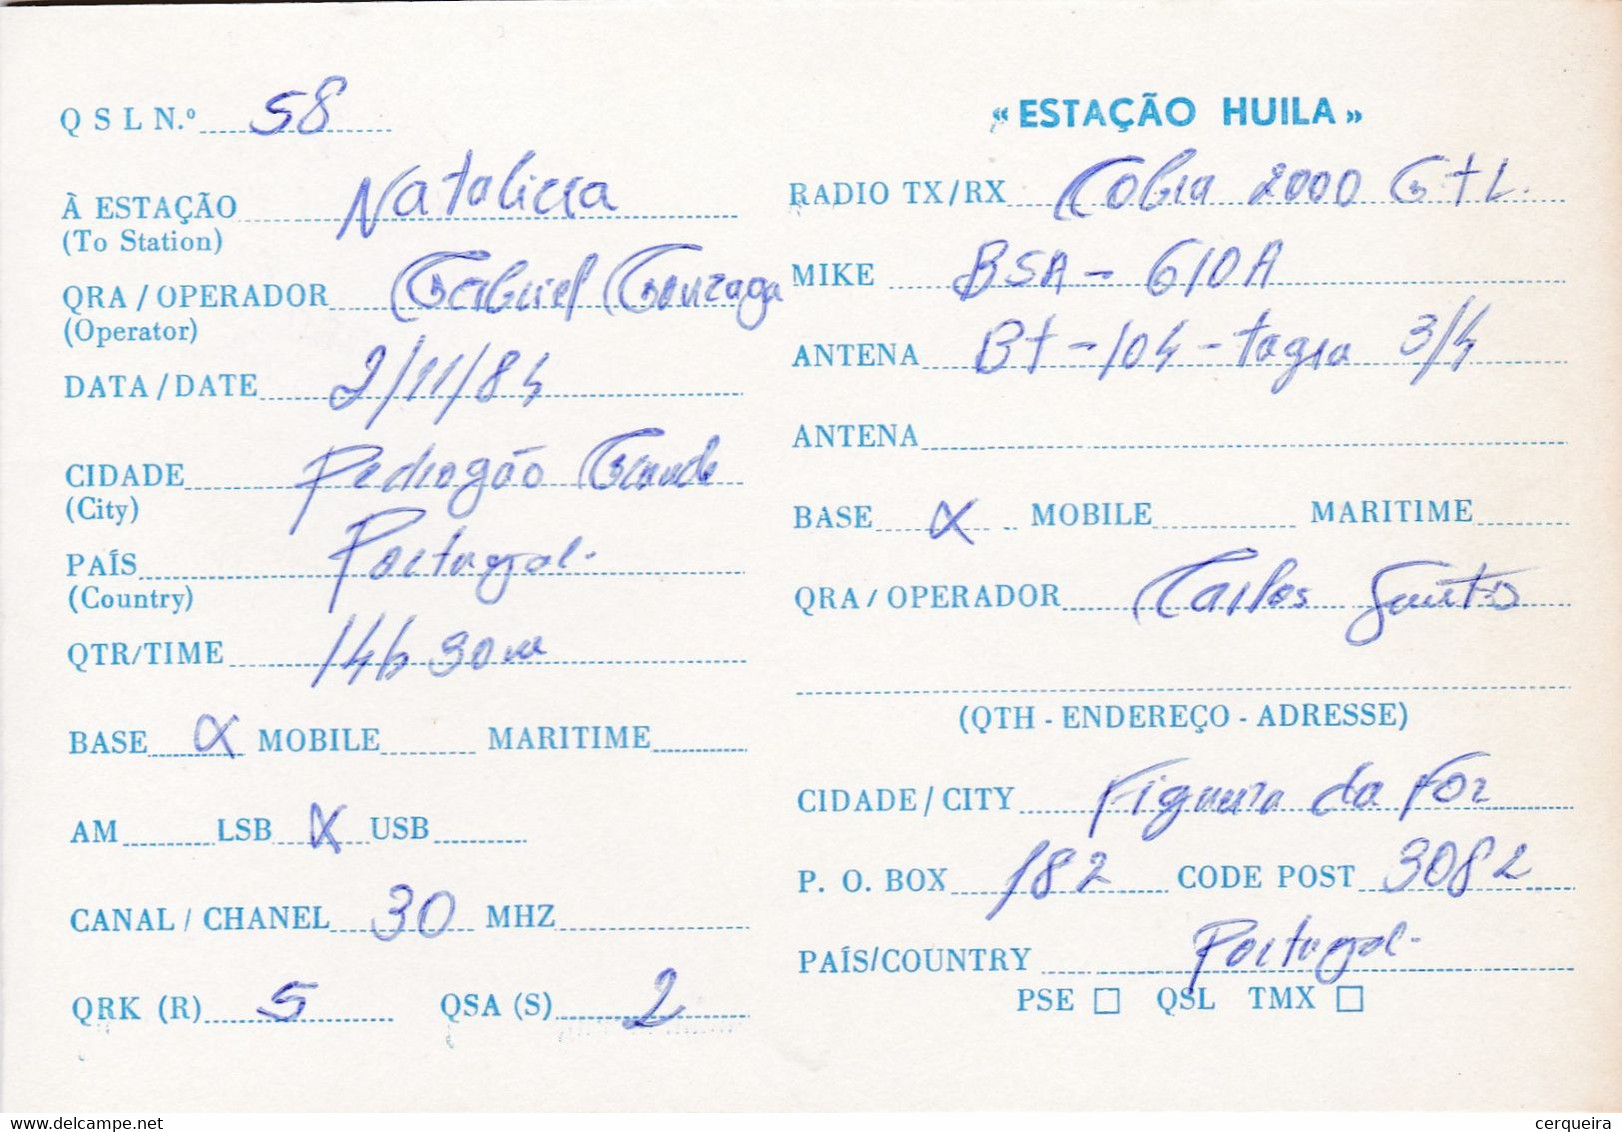 QSL N.º 58
À ESTAÇÃO Natalicia
(To Station)
QRA / OPERADOR Gabriel Gonzaga
(Operator)
DATA / DATE 2/11/84
CIDADE Pedrogão Grande
(City)
PAÍS Portugal.
(Country)
QTR/TIME 14h 30m
BASE X MOBILE MARITIME
AM LSB X USB
CANAL / CHANEL 30 MHZ
QRK (R) 5 QSA (S) 2
« ESTAÇÃO HUILA »
RADIO TX/RX Cobra 2000 GtL.
MIKE BSA - 610A
ANTENA Bt - 104 - tagra 3/4
ANTENA
BASE X MOBILE MARITIME
QRA / OPERADOR Carlos Santos
(QTH - ENDEREÇO - ADRESSE)
CIDADE / CITY Figueira da Foz
P. O. BOX 182 CODE POST 3082
PAÍS/COUNTRY Portugal.
PSE □ QSL TMX □
delcampe.net
cerqueira